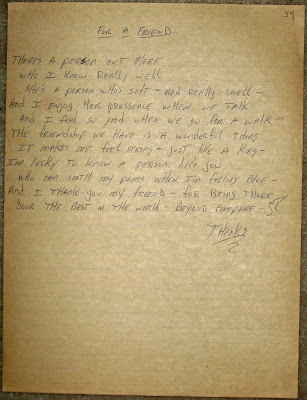 34
FOR A FRIEND
THERES A PERSON OUT THERE
WHO I KNOW REALLY WELL
SHE'S A PERSON WHO'S SOFT - AND REALLY SWELL -
AND I ENJOY HER PRESSENCE WHEN WE TALK
AND I FEEL SO GOOD WHEN WE GO FOR A WALK -
THE FRIENDSHIP WE HAVE IS A WONDERFUL THING
IT MAKES ME FEEL STRONG - JUST LIKE A KING -
I'M LUCKY TO KNOW A PERSON LIKE YOU
WHO CAN SOOTH MY PAINS WHEN I'M FEELING BLUE -
AND I THANK YOU MY FRIEND - FOR BEING THERE
YOUR THE BEST IN THE WORLD - BEYOND COMPARE -
THANKS